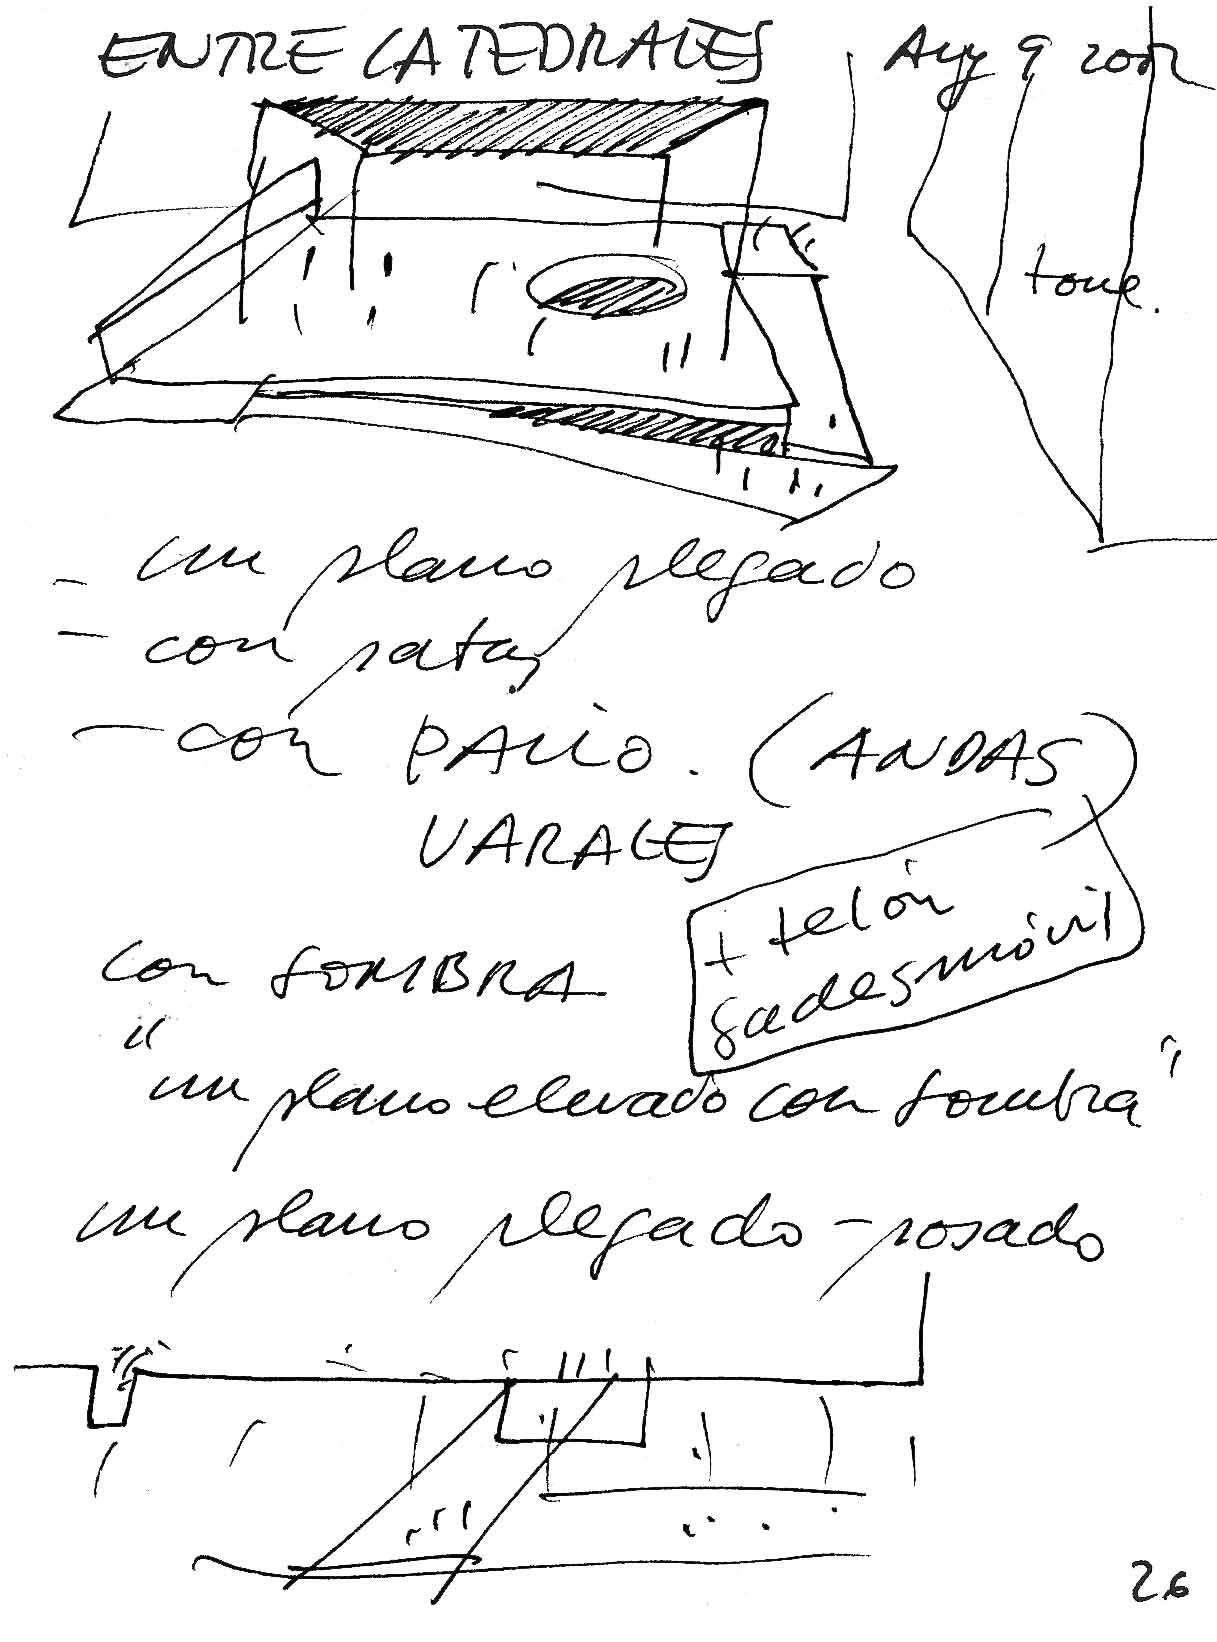 ENTRE CATEDRALES Aug 9 2002
torre.
- un plano plegado
- con patas,
- con PALIO. (ANDAS)
VARALES
+ telón
gadesmóvil
con SOMBRA
"un plano elevado con sombra"
un plano plegado - posado
26